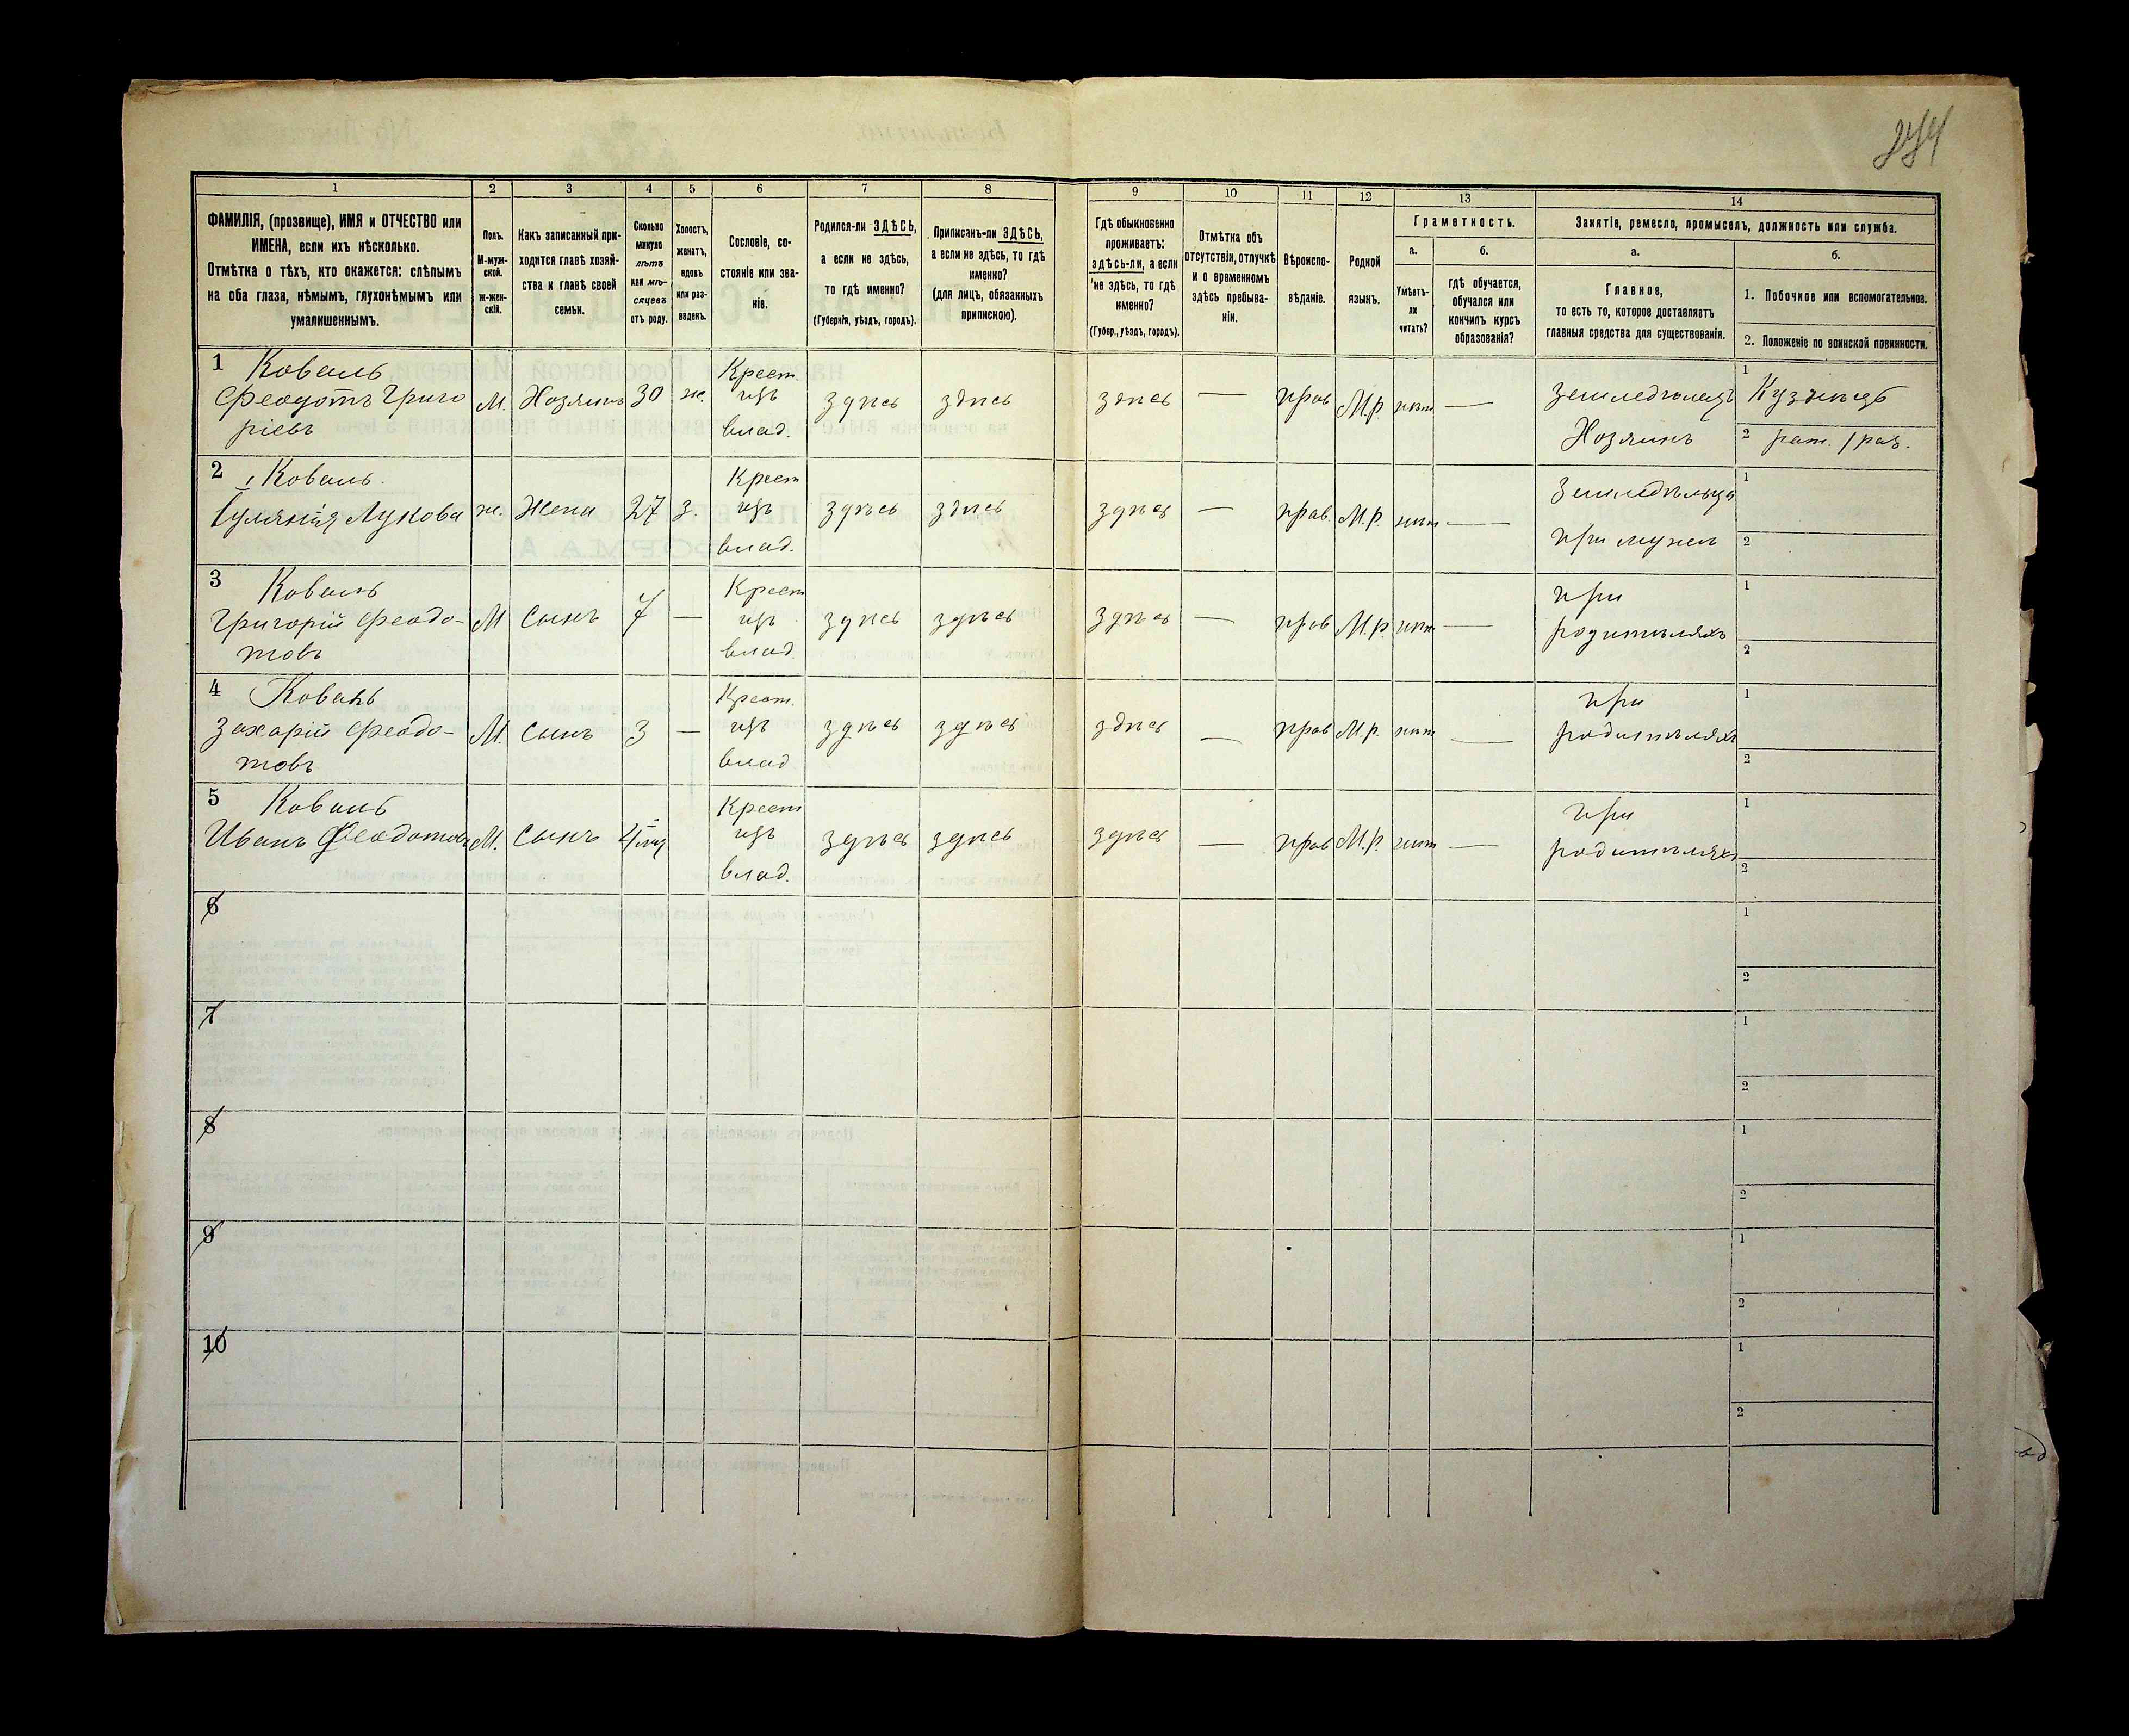 1 2 3 4 5 6 7 8 9 10 11 12 13 14
ФАМИЛІЯ, (прозвище), ИМЯ и ОТЧЕСТВО или
ИМЕНА, если ихъ нѣсколько.
Отмѣтка о тѣхъ, кто окажется: слѣпымъ
на оба глаза, нѣмымъ, глухонѣмымъ или
умалишеннымъ.
Полъ.
М-муж-
ской.
ж-жен-
скій.
Какъ записанный при-
ходится главѣ хозяй-
ства и главѣ своей
семьи.
Сколько
минуло
лѣтъ
или мѣ-
сяцевъ
отъ роду.
Холостъ,
женатъ,
вдовъ
или раз-
веденъ.
Сословіе, со-
стояніе или зва-
ніе.
Родился-ли ЗДѢСЬ,
а если не здѣсь,
то гдѣ именно?
(Губернія, уѣздъ, городъ).
Приписанъ-ли ЗДѢСЬ,
а если не здѣсь, то гдѣ
именно?
(для лицъ, обязанныхъ
припискою).
Гдѣ обыкновенно
проживаетъ:
здѣсь-ли, а если
не здѣсь, то гдѣ
именно?
(Губер., уѣздъ, городъ).
Отмѣтка объ
отсутствіи, отлучкѣ
и о временномъ
здѣсь пребыва-
ніи.
Вѣроиспо-
вѣданіе.
Родной
языкъ.
Грамотность.
а.
Умѣетъ-
ли
читать?
б.
гдѣ обучается,
обучался или
кончилъ курсъ
образованія?
Занятіе, ремесло, промыселъ, должность или служба.
а.
Главное,
то есть то, которое доставляетъ
главныя средства для существованія.
б.
1. Побочное или вспомогательное.
2. Положеніе по воинской повинности.
1 Коваль Крест 1
Феодотъ Григо М. Хозяинъ 30 ж. изъ здѣсь здѣсь здѣсь — прав М.р. нѣт — земледѣлецъ Кузнецъ
ріевъ влад. Хозяинъ 2 рат. 1 раз.
2 Коваль Крест Земледѣльца 1
Лукова ж. Жена 27 з. изъ здѣсь здѣсь здѣсь — прав. М.р. нѣт —
влад. при мужѣ 2
3 Коваль Крест при 1
Григорій Феодо- М сынъ 7 — изъ здѣсь здѣсь здѣсь — прав М.р. нѣт — родителяхъ
товъ влад. 2
4 Коваль Крест. при 1
Захарій Феодо- М. сынъ 3 — изъ здѣсь здѣсь здѣсь — прав М.р. нѣт — родителяхъ
товъ влад 2
5 Коваль Крест при 1
Иванъ Феодотовъ М. сынъ 4 мц — изъ здѣсь здѣсь здѣсь — прав М.р. нѣт — родителяхъ
влад. 2
6 1
2
7 1
2
8 1
2
9 1
2
10 1
2